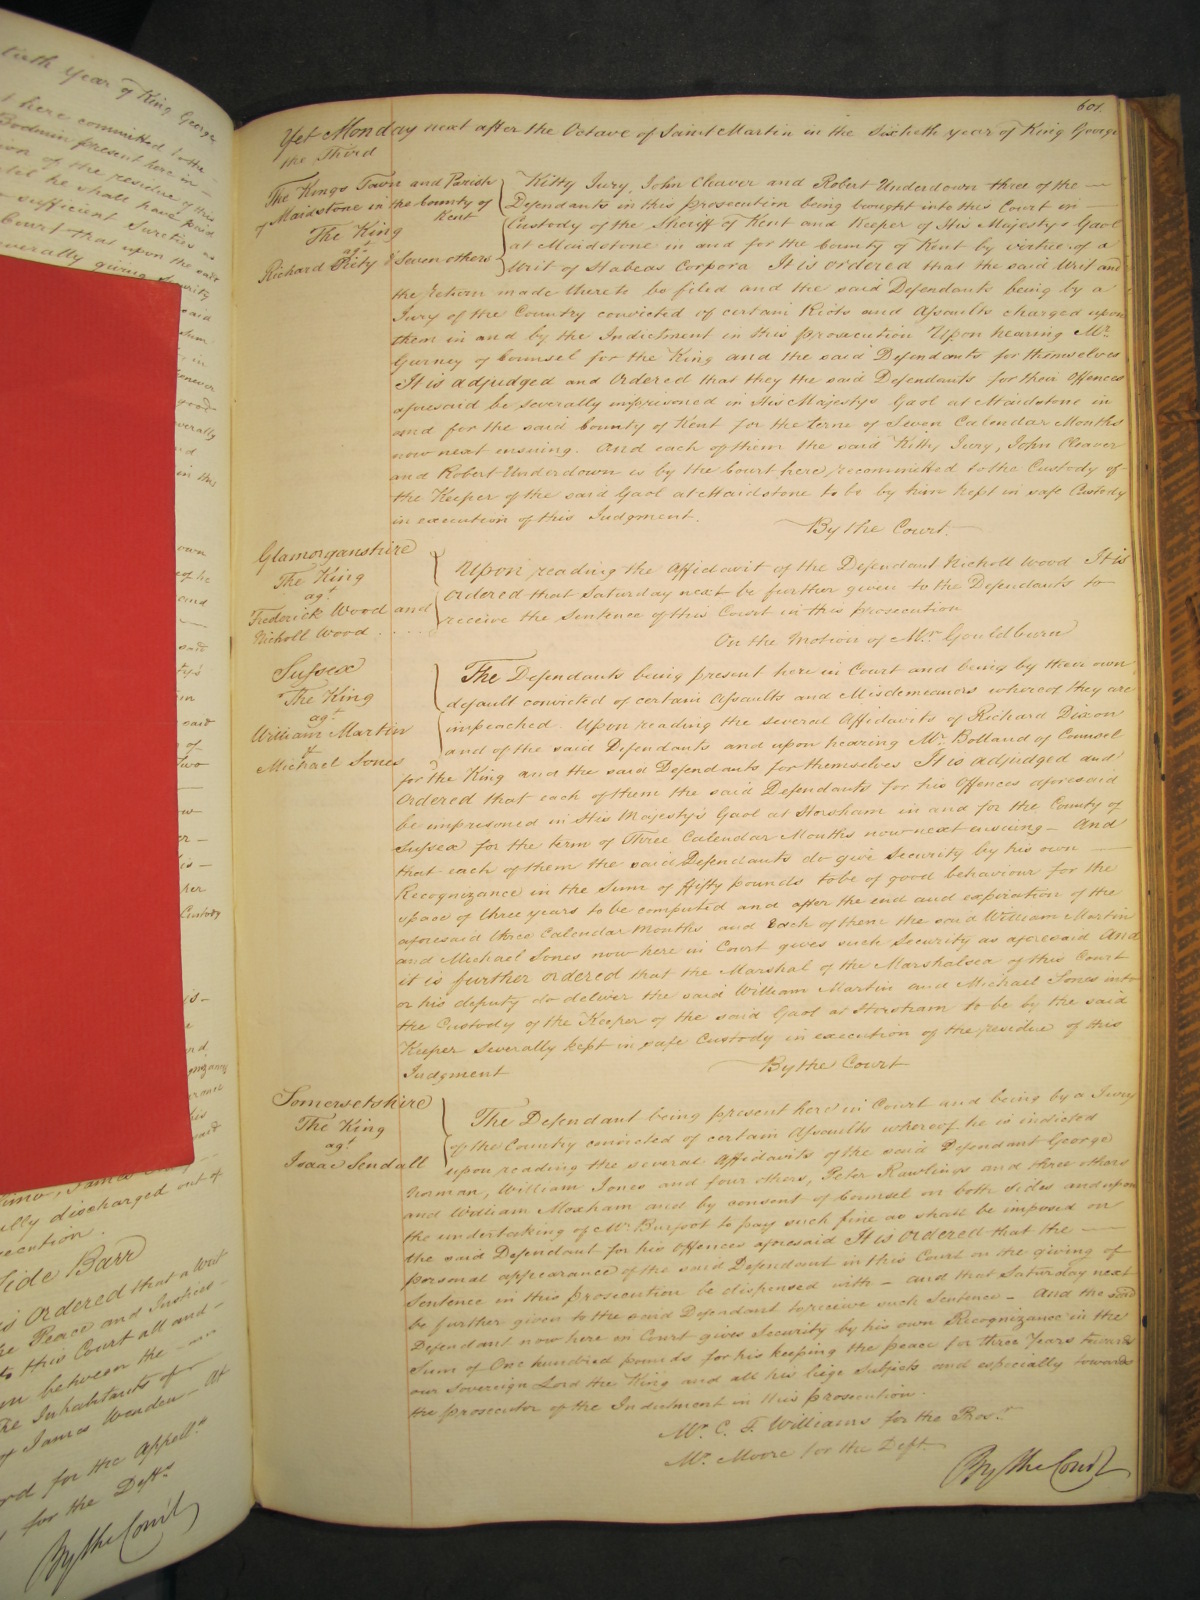 tieth year of King George
t here committed to the
Bodmin present here in
on of the residue of this
til he shall have paid
sufficient Sureties
Court that upon the
severally giving Security
lly discharged out of
ecution.
Side Barr
is Ordered that a Writ
he Peace and Justices
to this Court all and
en between the
the Inhabitants of
of James Wenden - At
rd for the Appell.ts
for the Deft.s
By the Court
601.
Yet Monday next after the Octave of Saint Martin in the Sixtieth year of King George
the Third
The Kings Town and Parish
of Maidstone in the County of
Kent
The King
ag.t
Richard Piety & Seven others
Kitty Jury, John Cleaver and Robert Underdown three of the
Defendants in this prosecution being bought into this Court in
Custody of the Sheriff of Kent and Keeper of His Majestys Gaol
at Maidstone in and for the County of Kent by virtue of a
Writ of Habeas Corpora It is ordered that the said Writ and
the return made thereto be filed and the said Defendants being by a
Jury of the Country convicted of certain Riots and Assaults charged upon
them in and by the Indictment in this prosecution Upon hearing Mr.
Gurney of Counsel for the King and the said Defendants for themselves
It is adjudged and Ordered that they the said Defendants for their Offences
aforesaid be severally imprisoned in His Majestys Gaol at Maidstone in
and for the said County of Kent for the term of Seven Calendar Months
now next ensuing. And each of them the said Kitty Jury, John Cleaver
and Robert Underdown is by the Court here recommitted to the Custody of
the Keeper of the said Gaol at Maidstone to be by him kept in safe Custody
in execution of this Judgment.
By the Court
Glamorganshire
The King
ag.t
Frederick Wood and
Nicholl Wood
Upon reading the Affidavit of the Defendant Nicholl Wood It is
Ordered that Saturday next be further given to the Defendants to
receive the Sentence of this Court in this prosecution
On the Motion of Mr. Gouldburn
Sussex
The King
ag.t
William Martin
&
Michael Jones
The Defendants being present here in Court and being by their own
default convicted of certain Assaults and Misdemeanors whereof they are
impeached. Upon reading the several Affidavits of Richard Dixon
and of the said Defendants and upon hearing Mr. Bolland of Counsel
for the King and the said Defendants for themselves It is adjudged and
Ordered that each of them the said Defendants for his Offences aforesaid
be imprisoned in His Majesty's Gaol at Horsham in and for the County of
Sussex for the term of Three Calendar Months now next ensuing - And
that each of them the said Defendants do give Security by his own
Recognizance in the Sum of fifty pounds to be of good behaviour for the
space of three years to be computed and after the end and expiration of the
aforesaid three Calendar Months and Each of them the said William Martin
and Michael Jones now here in Court gives such Security as aforesaid And
it is further ordered that the Marshal of the Marshalsea of this Court
or his deputy do deliver the said William Martin and Michael Jones into
the Custody of the Keeper of the said Gaol at Horsham to be by the said
Keeper severally kept in safe Custody in execution of the residue of this
Judgment
By the Court
Somersetshire
The King
ag.t
Isaac Sendall
The Defendant being present here in Court and being by a Jury
of the Country convicted of certain Assaults whereof he is indicted
upon reading the several Affidavits of the said Defendant George
Norman, William Jones and four others, Peter Rawlings and three others
and William Moxham and by consent of Counsel on both sides and upon
the undertaking of Mr. Burfoot to pay such fine as shall be imposed on
the said Defendant for his Offences aforesaid It is ordered that the
personal appearance of the said Defendant in this Court on the giving of
Sentence in this prosecution be dispensed with - and that Saturday next
be further given to the said Defendant to receive such Sentence - And the said
Defendant now here in Court gives Security by his own Recognizance in the
Sum of One hundred pounds for his keeping the peace for three Years towards
our Sovereign Lord the King and all his liege Subjects and especially towards
the prosecutor of the Indictment in this prosecution.
Mr. C. F. Williams for the Pros.r
Mr. Moore for the Deft.
By the Court